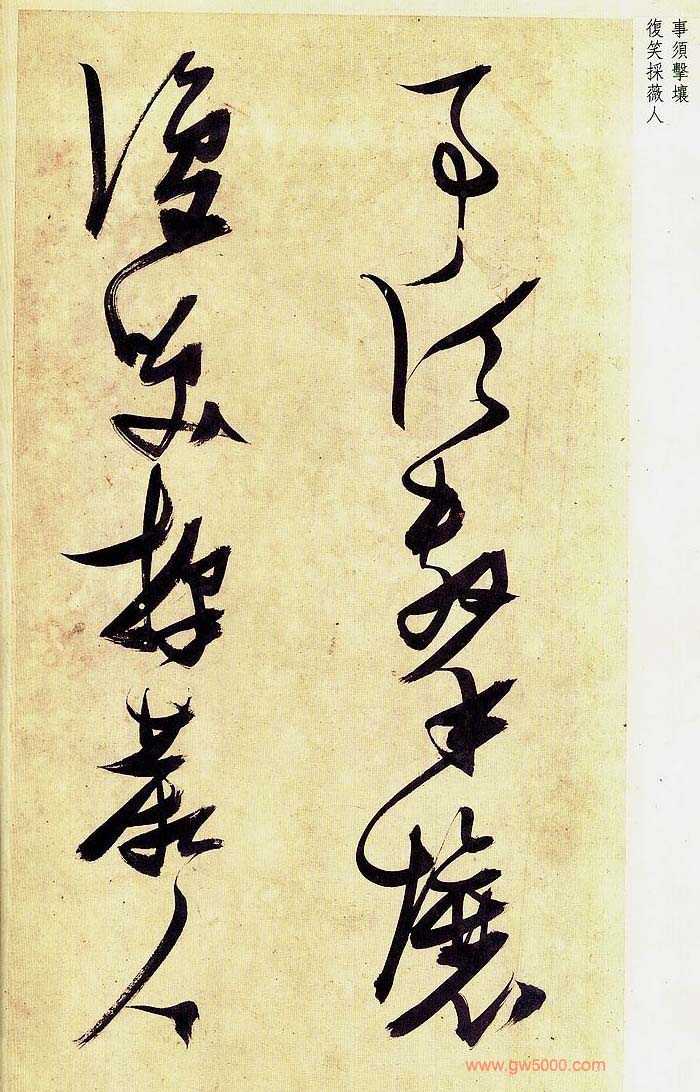 事須擊壤
復笑採薇人
事須擊壤
復笑採薇人
www.gw5000.com